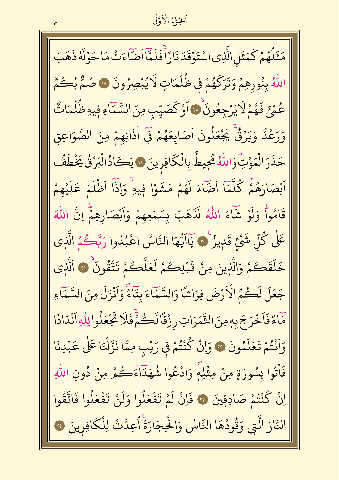 الجزء الاول
مَثَلُهُمْ كَمَثَلِ الَّذِى اسْتَوْقَدَ نَارًا فَلَمَّا اَضَاءَتْ مَا حَوْلَهُ ذَهَبَ
اللّٰهُ بِنُورِهِمْ وَتَرَكَهُمْ فِى ظُلُمَاتٍ لَا يُبْصِرُونَ ۝ صُمٌّ بُكْمٌ
عُمْىٌ فَهُمْ لَا يَرْجِعُونَ ۝ اَوْ كَصَيِّبٍ مِنَ السَّمَاءِ فِيهِ ظُلُمَاتٌ
وَرَعْدٌ وَبَرْقٌ يَجْعَلُونَ اَصَابِعَهُمْ فِى اٰذَانِهِمْ مِنَ الصَّوَاعِقِ
حَذَرَ الْمَوْتِ وَاللّٰهُ مُحِيطٌ بِالْكَافِرِينَ ۝ يَكَادُ الْبَرْقُ يَخْطَفُ
اَبْصَارَهُمْ كُلَّمَا اَضَاءَ لَهُمْ مَشَوْا فِيهِ وَاِذَا اَظْلَمَ عَلَيْهِمْ
قَامُوا وَلَوْ شَاءَ اللّٰهُ لَذَهَبَ بِسَمْعِهِمْ وَاَبْصَارِهِمْ اِنَّ اللّٰهَ
عَلٰى كُلِّ شَىْءٍ قَدِيرٌ ۝ يَا اَيُّهَا النَّاسُ اعْبُدُوا رَبَّكُمُ الَّذِى
خَلَقَكُمْ وَالَّذِينَ مِنْ قَبْلِكُمْ لَعَلَّكُمْ تَتَّقُونَ ۝ اَلَّذِى
جَعَلَ لَكُمُ الْاَرْضَ فِرَاشًا وَالسَّمَاءَ بِنَاءً وَاَنْزَلَ مِنَ السَّمَاءِ
مَاءً فَاَخْرَجَ بِهِ مِنَ الثَّمَرَاتِ رِزْقًا لَكُمْ فَلَا تَجْعَلُوا لِلّٰهِ اَنْدَادًا
وَاَنْتُمْ تَعْلَمُونَ ۝ وَاِنْ كُنْتُمْ فِى رَيْبٍ مِمَّا نَزَّلْنَا عَلٰى عَبْدِنَا
فَاْتُوا بِسُورَةٍ مِنْ مِثْلِهِ وَادْعُوا شُهَدَاءَكُمْ مِنْ دُونِ اللّٰهِ
اِنْ كُنْتُمْ صَادِقِينَ ۝ فَاِنْ لَمْ تَفْعَلُوا وَلَنْ تَفْعَلُوا فَاتَّقُوا
النَّارَ الَّتِى وَقُودُهَا النَّاسُ وَالْحِجَارَةُ اُعِدَّتْ لِلْكَافِرِينَ ۝